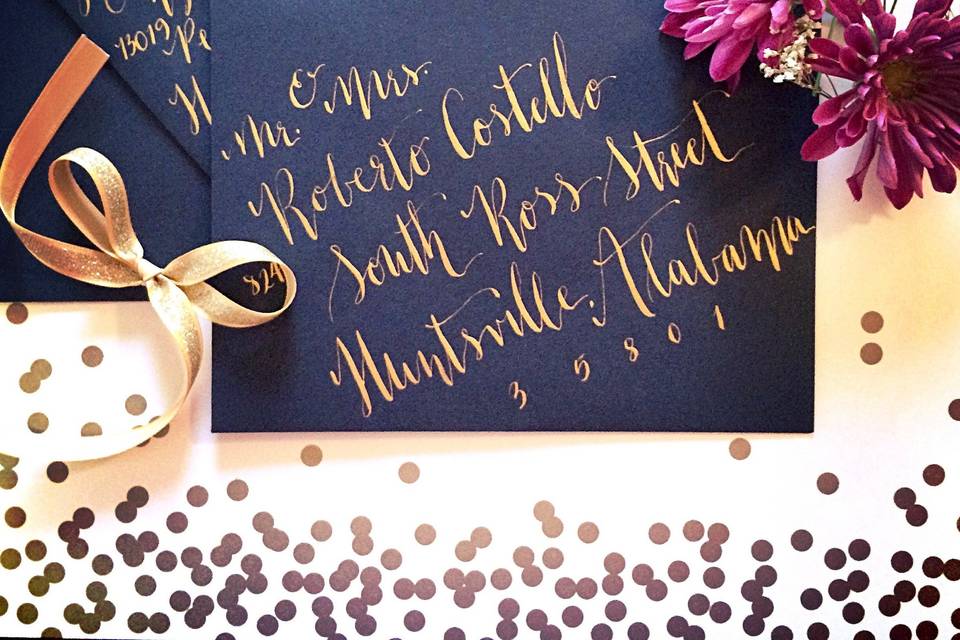 13019
Mr. & Mrs.
Roberto Costello
824 South Ross Street
Huntsville, Alabama
35801